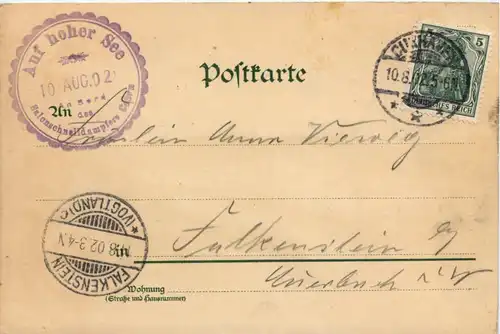 Auf hoher See
10 AUG.02
an Bord
des
Salonschnelldampfers
Postkarte
CUXHAVEN
10.8.02.5-6N
5
DEUTSCHES REICH
An
Fräulein Anna Vierweg
Falkenstein
Auerbach i/V
in
(VOGTLAND)
8 02.3-4.N
FALKENSTEIN
Wohnung
(Straße und Hausnummer)